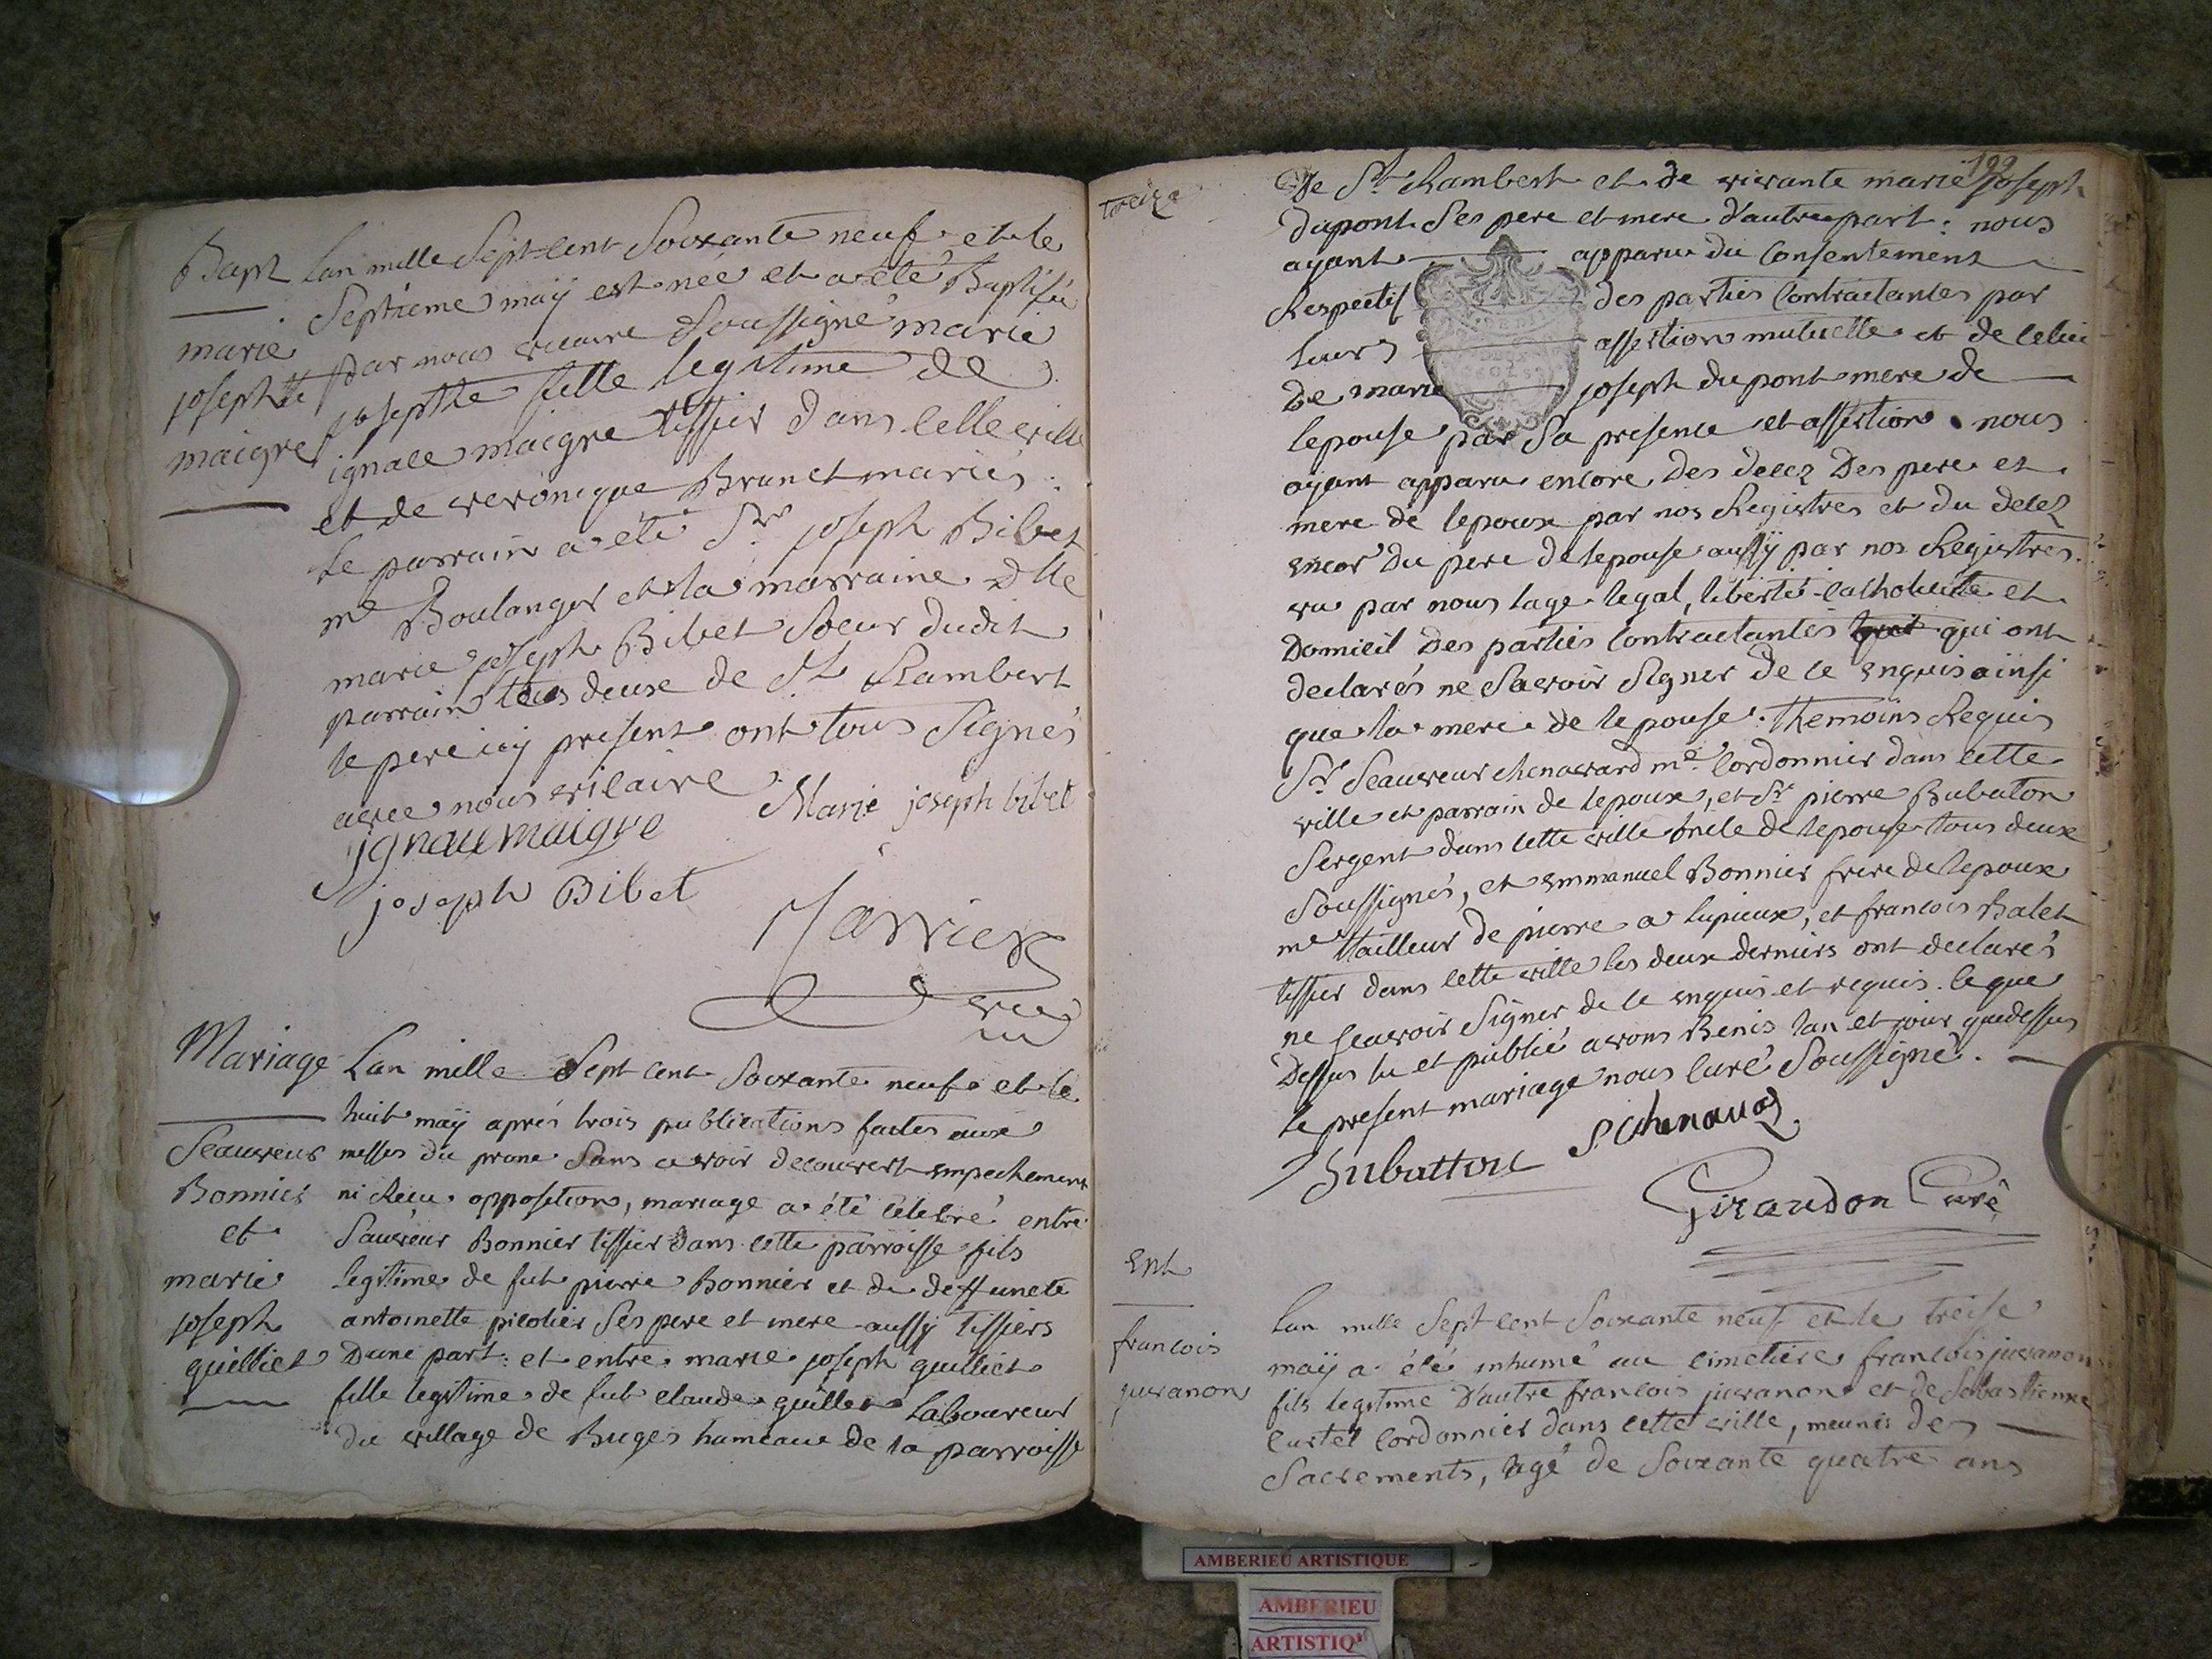 Bapt
marie
josephte
maigre
Lan mille Sept cent Soixante neuf et le
Septieme maÿ est née et a été Baptisée
par nous vicaire Soussigné marie
josephte fille legitime de
ignace maigre tissier dans cette ville
et de veronique Brunet mariés :
Le parrain a été Sr joseph Bibet
me Boulanger et la marraine Dlle
marie joseph Bibet Soeur dudit
parrain tous deux de St Rambert
le pere icy present ont tous Signés
avec nous vicaire
Marie joseph bibet
ignace maigre
joseph Bibet
Mariage
Seauveur
Bonnier
et
marie
joseph
quilliet
Lan mille Sept cent Soixante neuf et le
huit maÿ aprés trois publications faites aux
messes du prone Sans avoir decouvert empechement
ni Reçu opposition, mariage a été célebré entre
Sauveur Bonnier tissier Dans cette parroisse fils
legitime de fut pierre Bonnier et de deffuncte
antoinette picotier Ses pere et mere aussy tissiers
Dune part : et entre marie joseph quilliet
fille legitime de fut claude quillet Laboureur
du village de Buges hameau de la parroisse
treize
199
De St Rambert et de vivante marie joseph
dupont Ses pere et mere d'autre part : nous
ayant apparu du Consentement
Respectif des parties Contractantes par
leurs assertion mutuelle et de celui
De marie joseph dupont mere de
lepouse par Sa presence et assertion . nous
ayant apparu encore Des decez Des pere et
mere de lepoux par nos Registres et du decez
encor du pere de lepouse aussÿ par nos Registres.
vu par nous lage legal, liberté catholicité et
Domicil Des parties Contractantes qui ont
declarés ne Sçavoir Signer de ce enquis ainsi
que la mere de lepouse . themoins Requis
Sr Seauveur chenavard me Cordonnier dans cette
ville et parrain de lepoux, et Sr pierre Bubaton
Sergent dans cette ville oncle de lepouse tous deux
Soussignés, et emmanuel Bonnier frere de lepoux
me tailleur de pierre a lupieux, et francois Balet
tissier dans cette ville les deux derniers ont declarés
ne sçavoir Signer de ce enquis et requis . ce que
Dessus lu et publié avons Benis lan et jour quedessus
le present mariage nous Curé Soussigné .
Bubatton S. Chenavard
Giraudon Curé
Ent
francois
juvanon
Lan mille Sept cent Soixante neuf et le treise
maÿ a été inhumé au cimetiere francois juvanon
fils legitime D'autre francois juvanon et de Sebastienne
Curtet Cordonnier dans cette ville, meunis des
Sacrements, agé de Soixante quatre ans
AMBERIEU ARTISTIQUE
AMBERIEU
ARTISTIQ